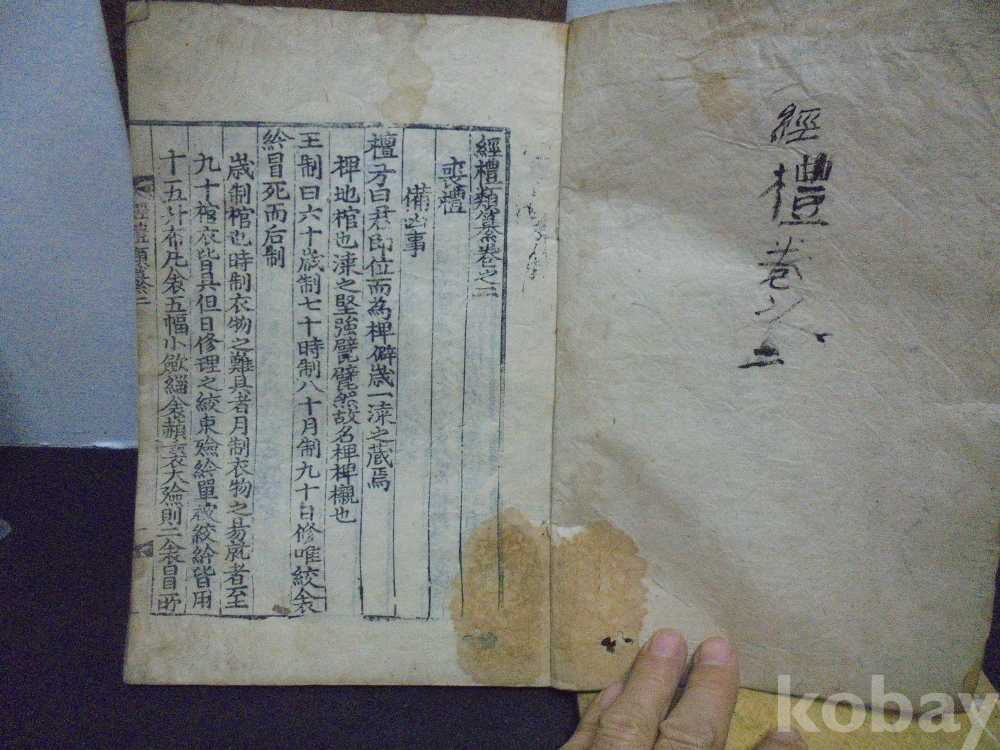 經禮卷之二
經禮類纂卷之二
喪禮
備凶事
檀弓曰君即位而為椑僻歲一漆之藏焉
椑地棺也漆之堅強甓甓然故名椑椑櫬也
王制曰六十歲制七十時制八十月制九十日修唯絞衾
紟冒死而后制
歲制棺也時制衣物之難具者月制衣物之易就者至
九十棺衣皆具但日修理之絞束殮紟單被絞紟皆用
十五升布凡衾五幅小斂緇衾赬裏大殮則二衾冒所
經禮類纂 二
kobay